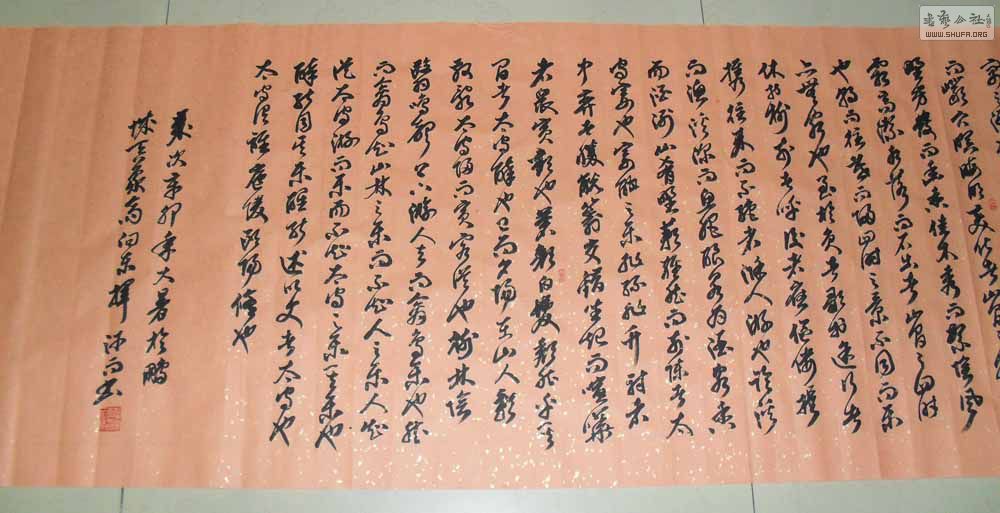 而巖穴暝晦明變化者山
野芳發而幽香佳木秀而繁陰風
霜高潔水落而石出者山間之四時
也朝而往暮而歸四時之景不同而樂
亦無窮也至於負者歌於途行者
休於樹前者呼後者應傴僂提
攜往來而不絕者滁人游也臨溪
而漁溪深而魚肥釀泉為酒泉香
而酒洌山肴野蔌雜然而前陳者太
守宴也宴酣之樂非絲非竹射者
中弈者勝觥籌交錯坐起而喧譁
者眾賓歡也蒼顏白髮頹然乎其
間者太守醉也已而夕陽在山人影
散亂太守歸而賓客從也樹林陰
翳鳴聲上下游人去而禽鳥樂也然
而禽鳥知山林之樂而不知人之樂人知
從太守游而樂而不知太守之樂其樂也
醉能同其樂醒能述以文者太守也
太守謂誰廬陵歐陽修也
歲次辛卯年大暑於鵬
城
书艺公社
WWW.SHUFA.ORG